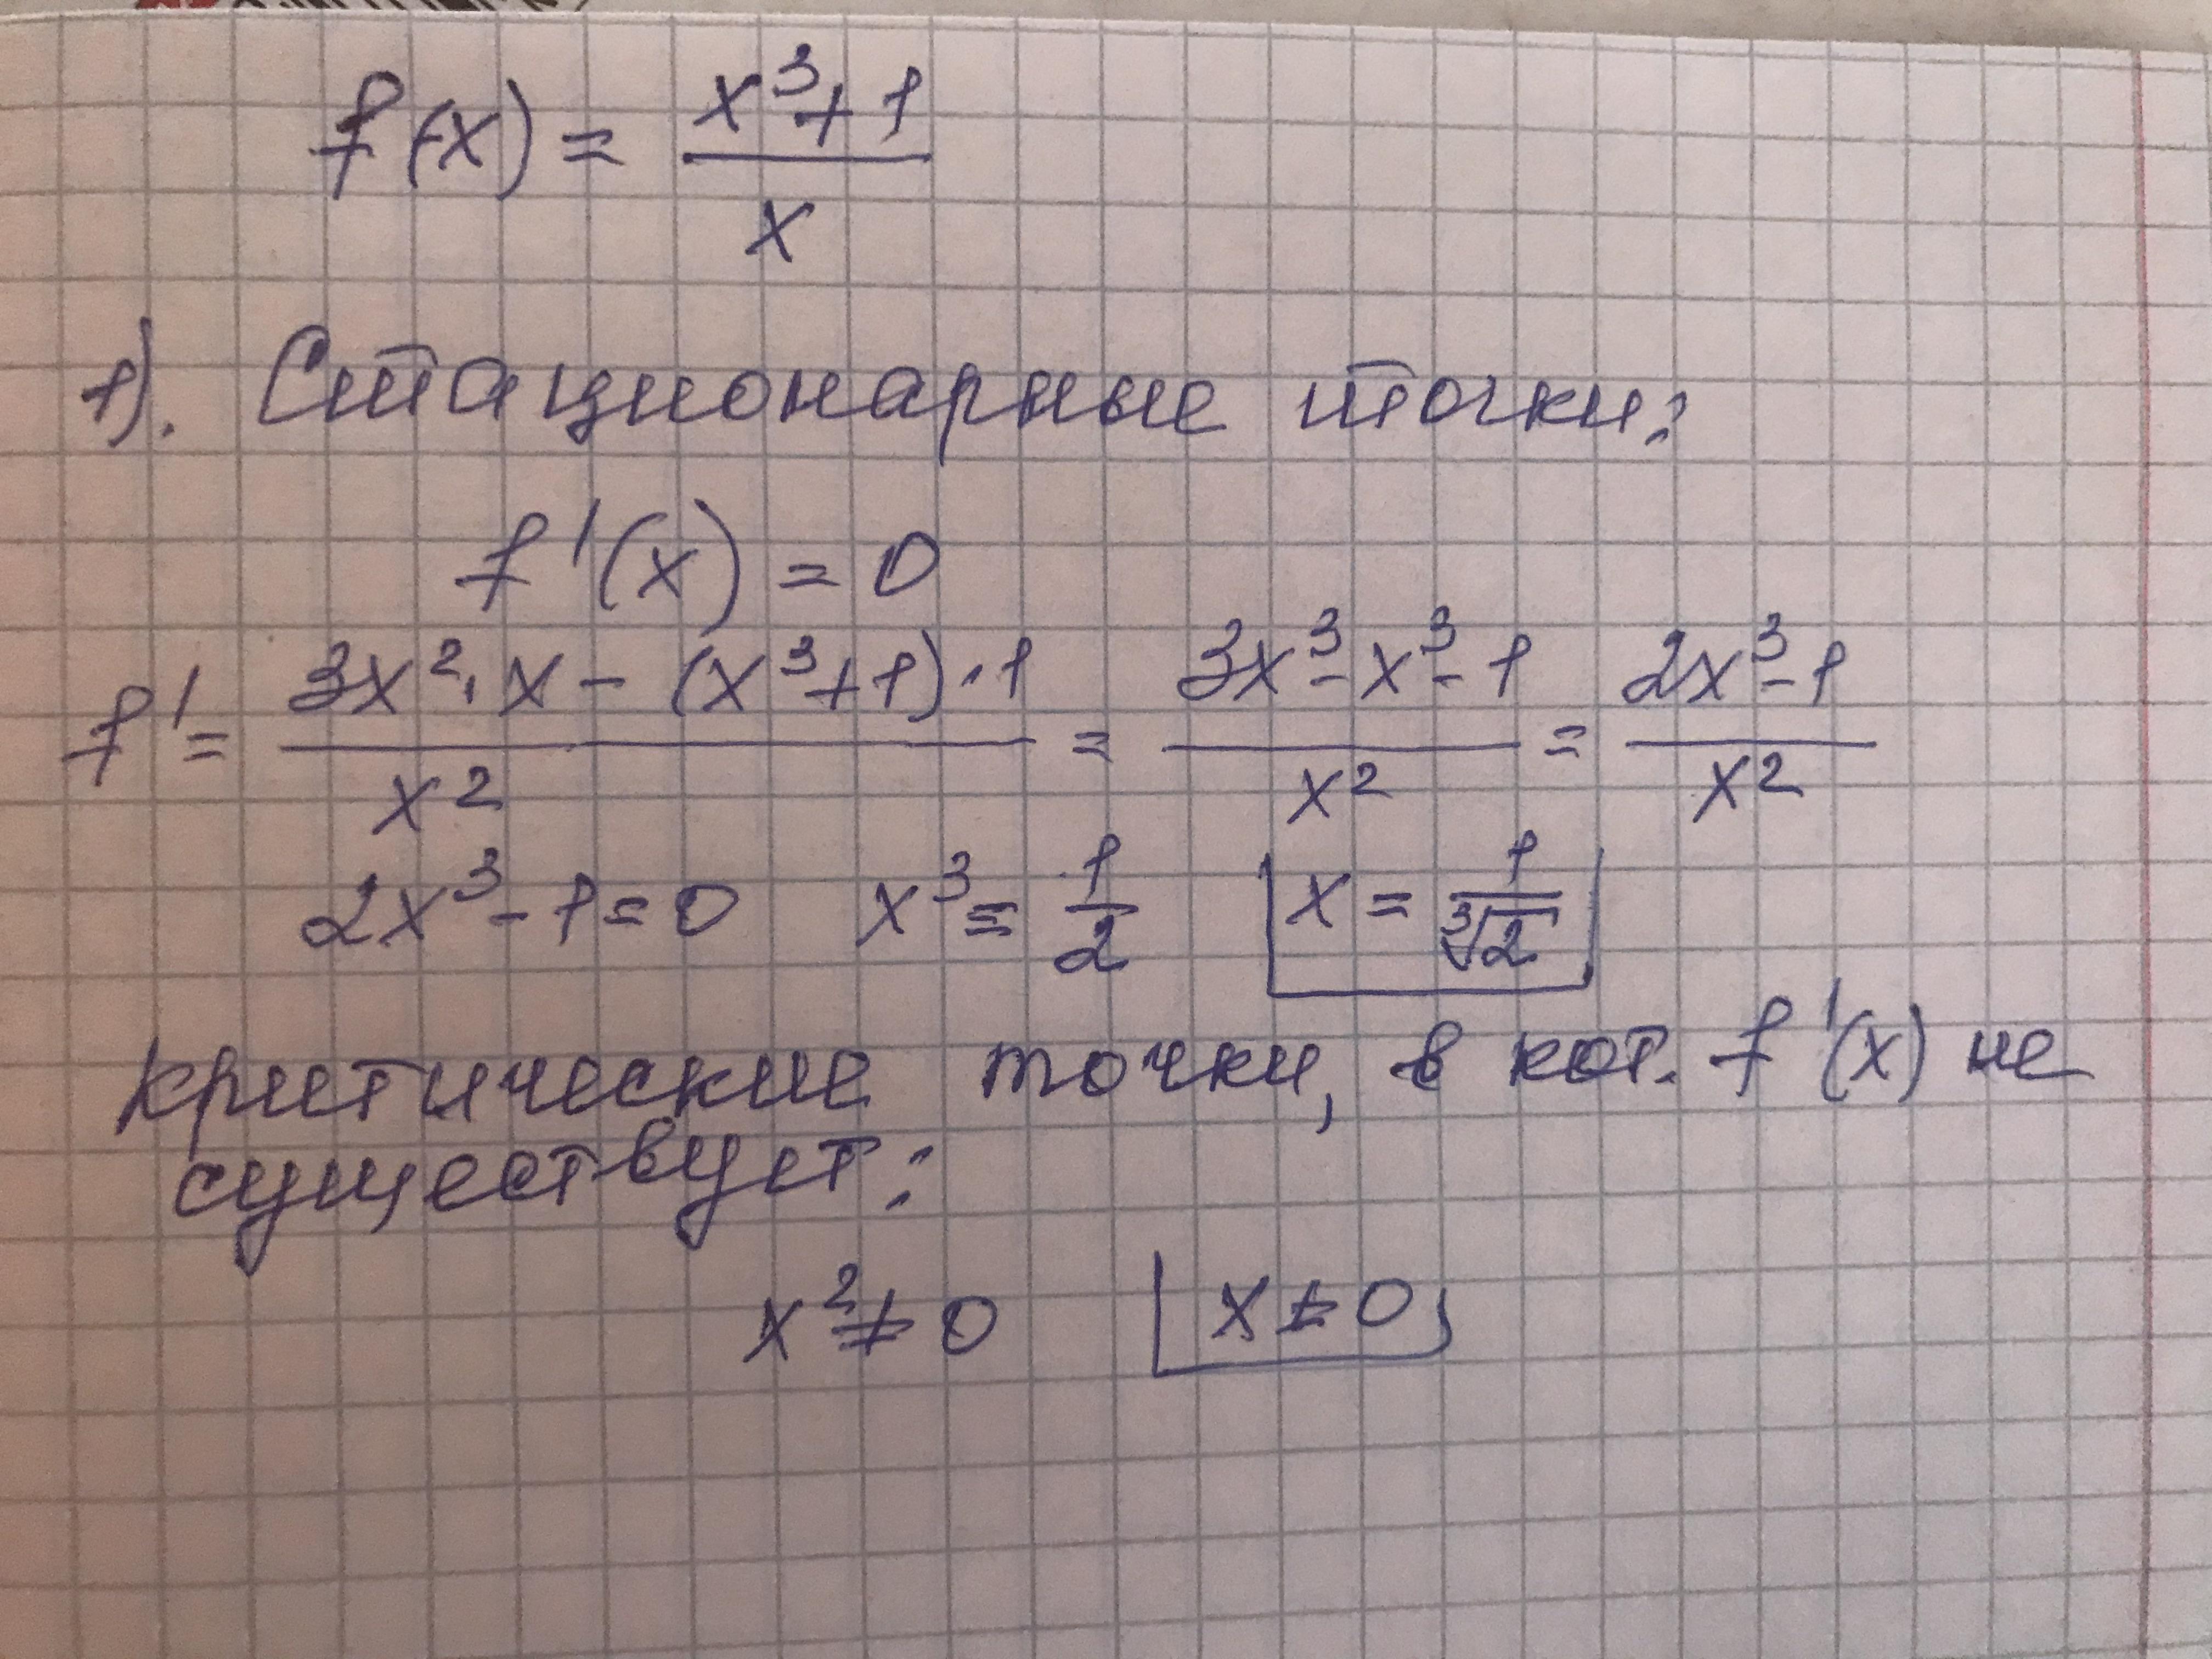 f(x) = (x³+1)/x
1). Стационарные точки:
f'(x) = 0
f' = (3x²·x − (x³+1)·1)/x² = (3x³−x³−1)/x² = (2x³−1)/x²
2x³−1=0 x³ = 1/2 x = 1/∛2
критические точки, в кот. f'(x) не
существует:
x² ≠ 0 x ≠ 0